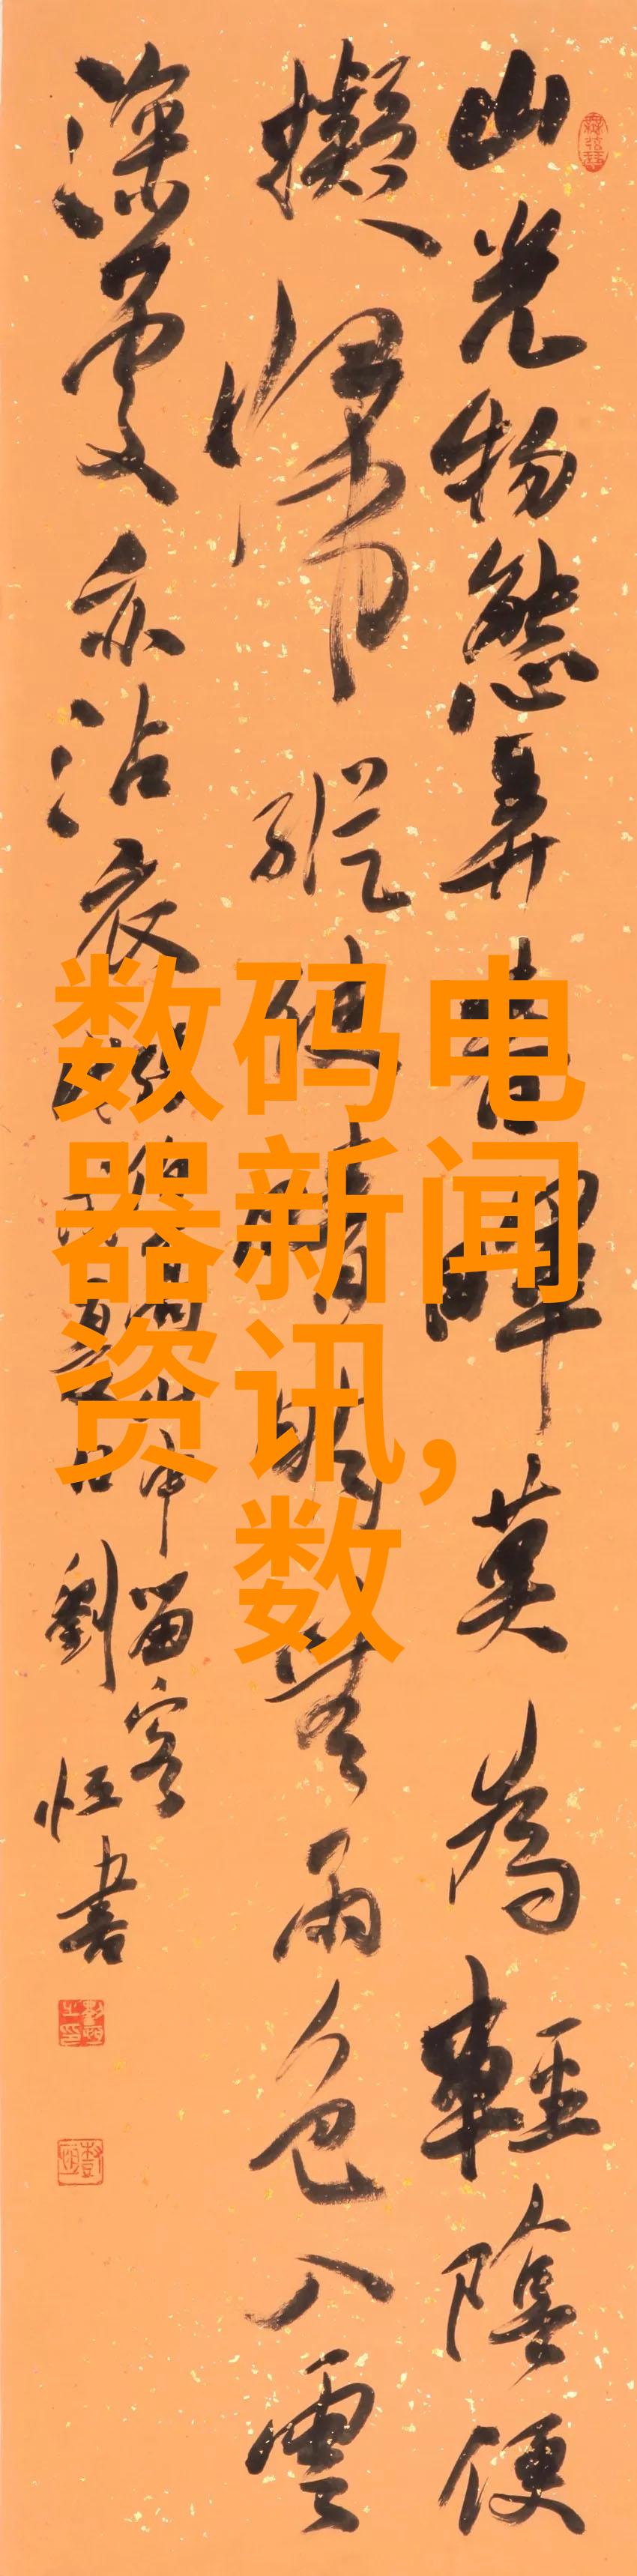 山光物態弄春暉莫為輕陰便
擬歸縱使晴明無雨色入雲
深處亦沾衣
山中留客
劉恒書
数码电
器新闻
资讯,
数